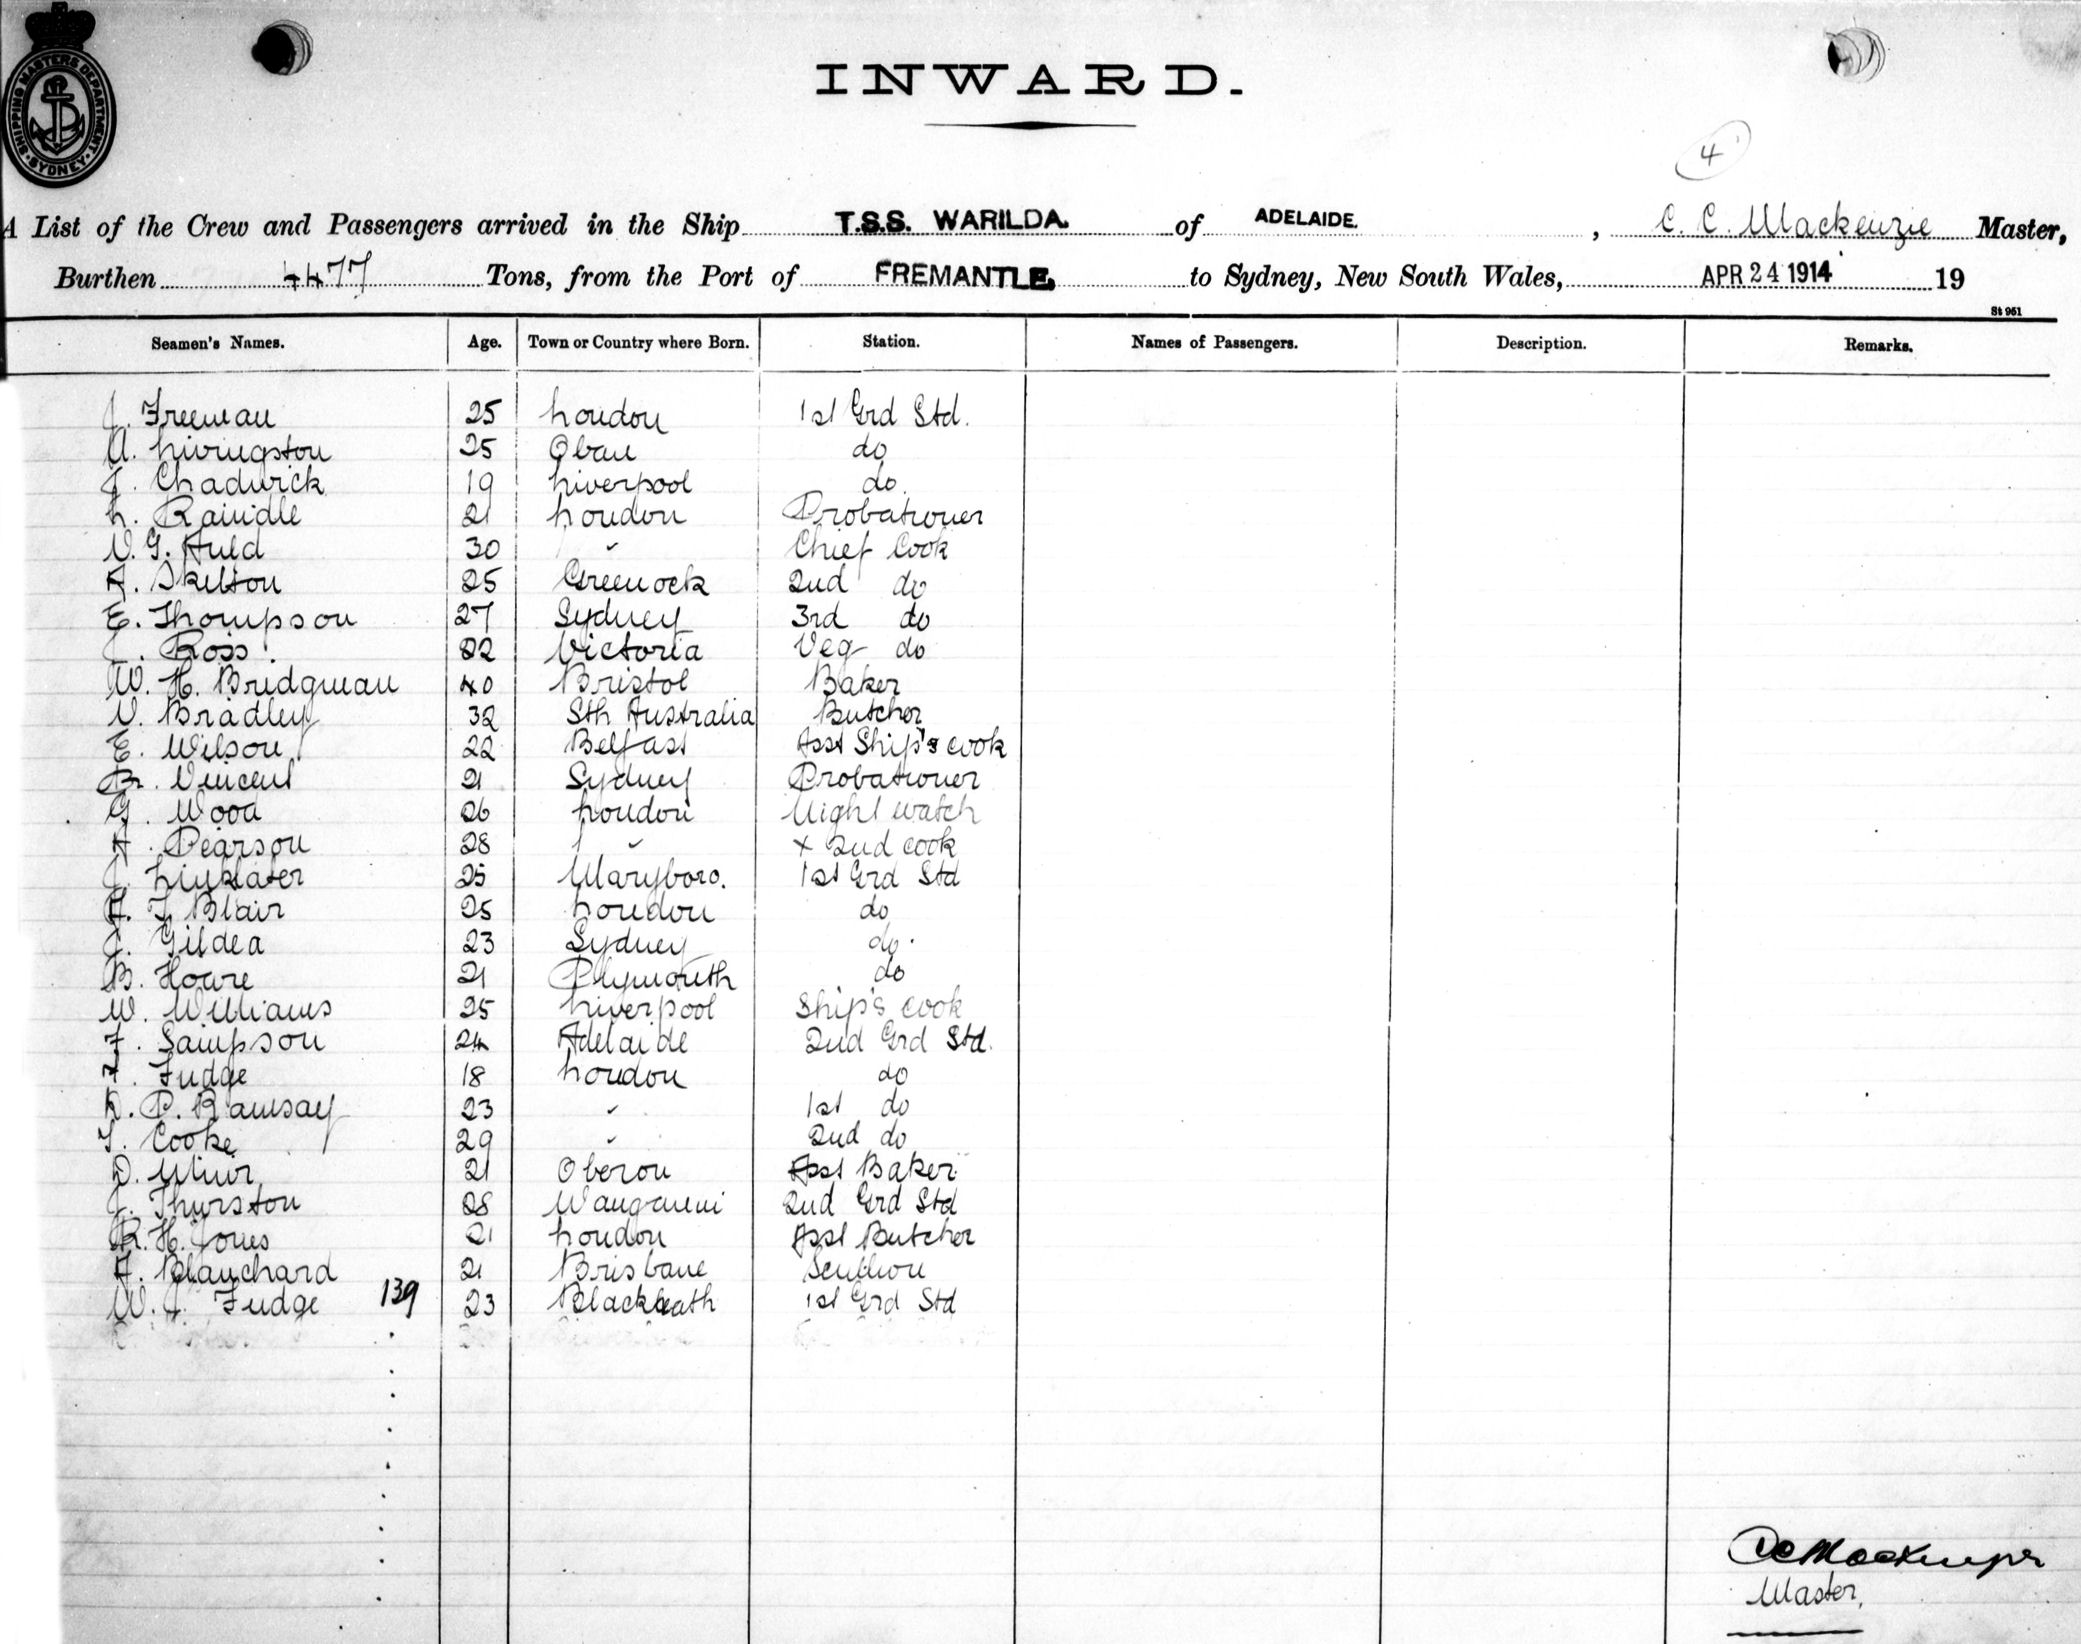 SHIPPING MASTERS DEPARTMENT
SYDNEY
INWARD.
4
A List of the Crew and Passengers arrived in the Ship T.S.S. WARILDA. of ADELAIDE. , C. C. Mackenzie Master,
Burthen 4477 Tons, from the Port of FREMANTLE, to Sydney, New South Wales, APR 24 1914 19
St 961
Seamen's Names. Age. Town or Country where Born. Station. Names of Passengers. Description. Remarks.
J. Freeman 25 London 1st Grd Std.
A. Livingston 25 Oban do
J. Chadwick 19 Liverpool do.
L. Raindle 21 London Probationer
V. G. Auld 30 " Chief Cook
A. Skelton 25 Greenock 2nd do
E. Thompson 27 Sydney 3rd do
J. Ross. 22 Victoria Veg do
W. H. Bridgman 40 Bristol Baker
V. Bradley 32 Sth Australia Butcher
E. Wilson 22 Belfast Asst Ship's cook
Br. Vincent 21 Sydney Probationer
G. Wood 26 London Night watch
A. Pearson 28 " x 2nd cook
J. Linklater 25 Maryboro. 1st Grd Std
A. T. Blair 25 London do
J. Gildea 23 Sydney do.
B. Howre 21 Plymouth do
W. Williams 25 Liverpool Ship's cook
F. Sampson 24 Adelaide 2nd Grd Std.
F. Fudge 18 London do
D. P. Ramsay 23 " 1st do
T. Cooke 29 " 2nd do
D. Muir 21 Oberon Asst Baker
J. Thurston 28 Wanganui 2nd Grd Std
R. H. Jones 21 London Asst Butcher
A. Blanchard 21 Brisbane Scullion
W. J. Fudge 139 23 Blackheath 1st Grd Std
CC Mackenzie
Master,